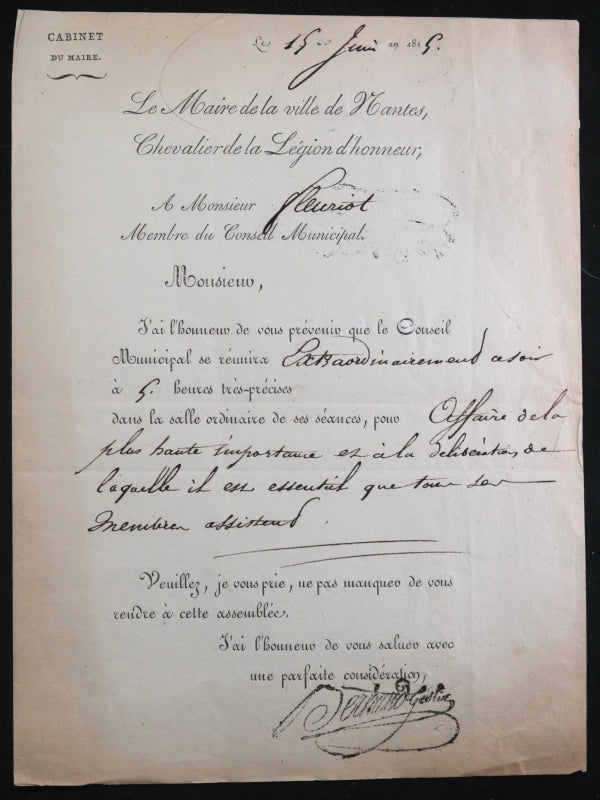 CABINET
DU MAIRE.
Le 15 Juin an 1815.
Le Maire de la ville de Nantes,
Chevalier de la Légion d'honneur,
A Monsieur fleuriot
Membre du Conseil Municipal.
Monsieur,
J'ai l'honneur de vous prévenir que le Conseil
Municipal se réunira Extraordinairement ce soir
à 5. heures très-précises
dans la salle ordinaire de ses séances, pour Affaire de la
plus haute importance et à la délibération de
laquelle il est essentiel que tous ses
membres assistent.
Veuillez, je vous prie, ne pas manquer de vous
rendre à cette assemblée.
J'ai l'honneur de vous saluer avec
une parfaite considération,
Bertrand Geslin